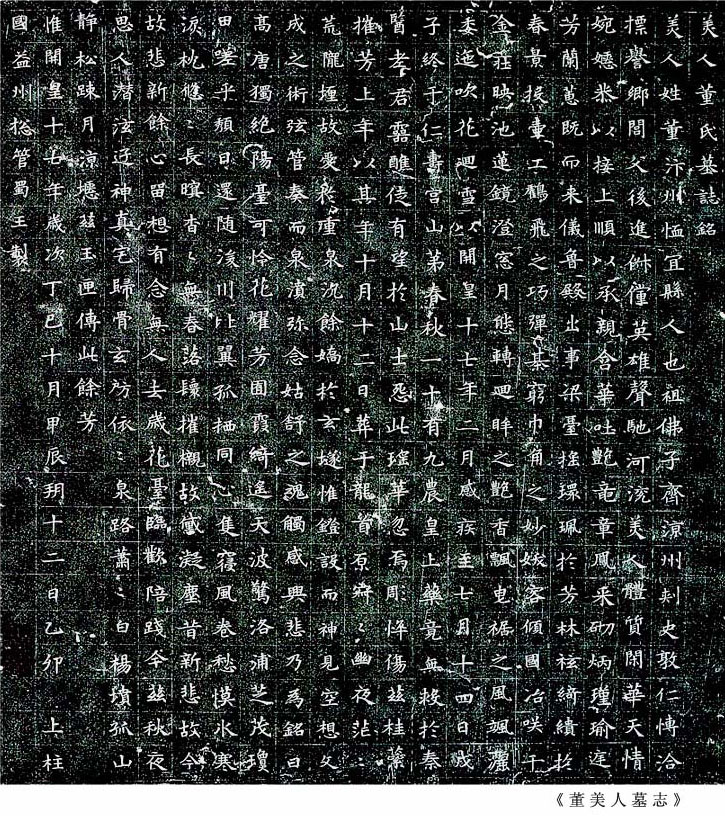 美人董氏墓誌銘
美人姓董汴州恤宜縣人也祖佛子齊涼州刺史敦仁慱洽
摽譽鄉閭父後進俶儻英雄聲馳河兗美人體質閑華天情
婉嫕恭以接上順以承親含華吐艷竜章鳳采砌炳瑾瑜庭
芳蘭蕙既而来儀魯殿出事梁臺搖環珮於芳林袨綺繢於
春景投壺工鶴飛之巧彈棊窮巾角之妙妖容傾國冶咲千
金莊映池蓮鏡澄窓月態轉迴眸之艷香飄曳裾之風颯灑
委迤吹花迴雪以開皇十七年二月感疾至七月十四日戊
子終于仁壽宮山第春秋一十有九農皇上藥竟無救於秦
醫老君靈醮徒有望於山士怨此瑤華忽焉彫悴傷茲桂蘂
摧芳上年以其年十月十二日葬于龍首原寂〻幽夜茫〻
荒隴埋故愛於重泉沉餘嬌於玄隧惟鐙設而神見空想文
成之術弦管奏而泉濆弥念姑舒之魂觸感興悲乃為銘曰
高唐獨絕陽臺可怜花耀芳囿霞綺遙天波驚洛浦芝茂瓊
田嗟乎頹日還隨湲川比翼孤栖同心隻寢風卷愁慔冰寒
淚枕悠〻長暝杳〻無春落鬟摧櫬故黛凝塵昔新悲故今
故悲新餘心留想有念無人去歲花臺臨歡陪踐今茲秋夜
思人潛泫迎神真宅歸骨玄房依〻泉路蕭〻白楊墳孤山
靜松踈月涼瘞茲玉匣傳此餘芳
惟開皇十七年歲次丁巳十月甲辰朔十二日乙卯 上柱
國益州總管蜀王製
《董美人墓志》